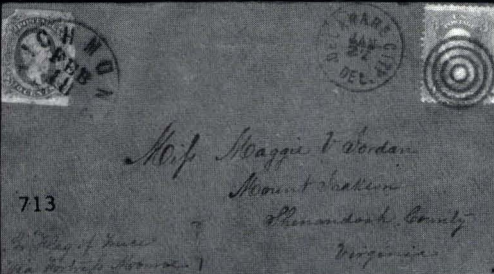 RICHMON
FEB
11
DELAWARE CITY
JAN
DEL.
Miss Maggie V Jordan
Mount Jackson
Shenandoah County
Virginia
713
Flag of Truce
via Fortress Monroe